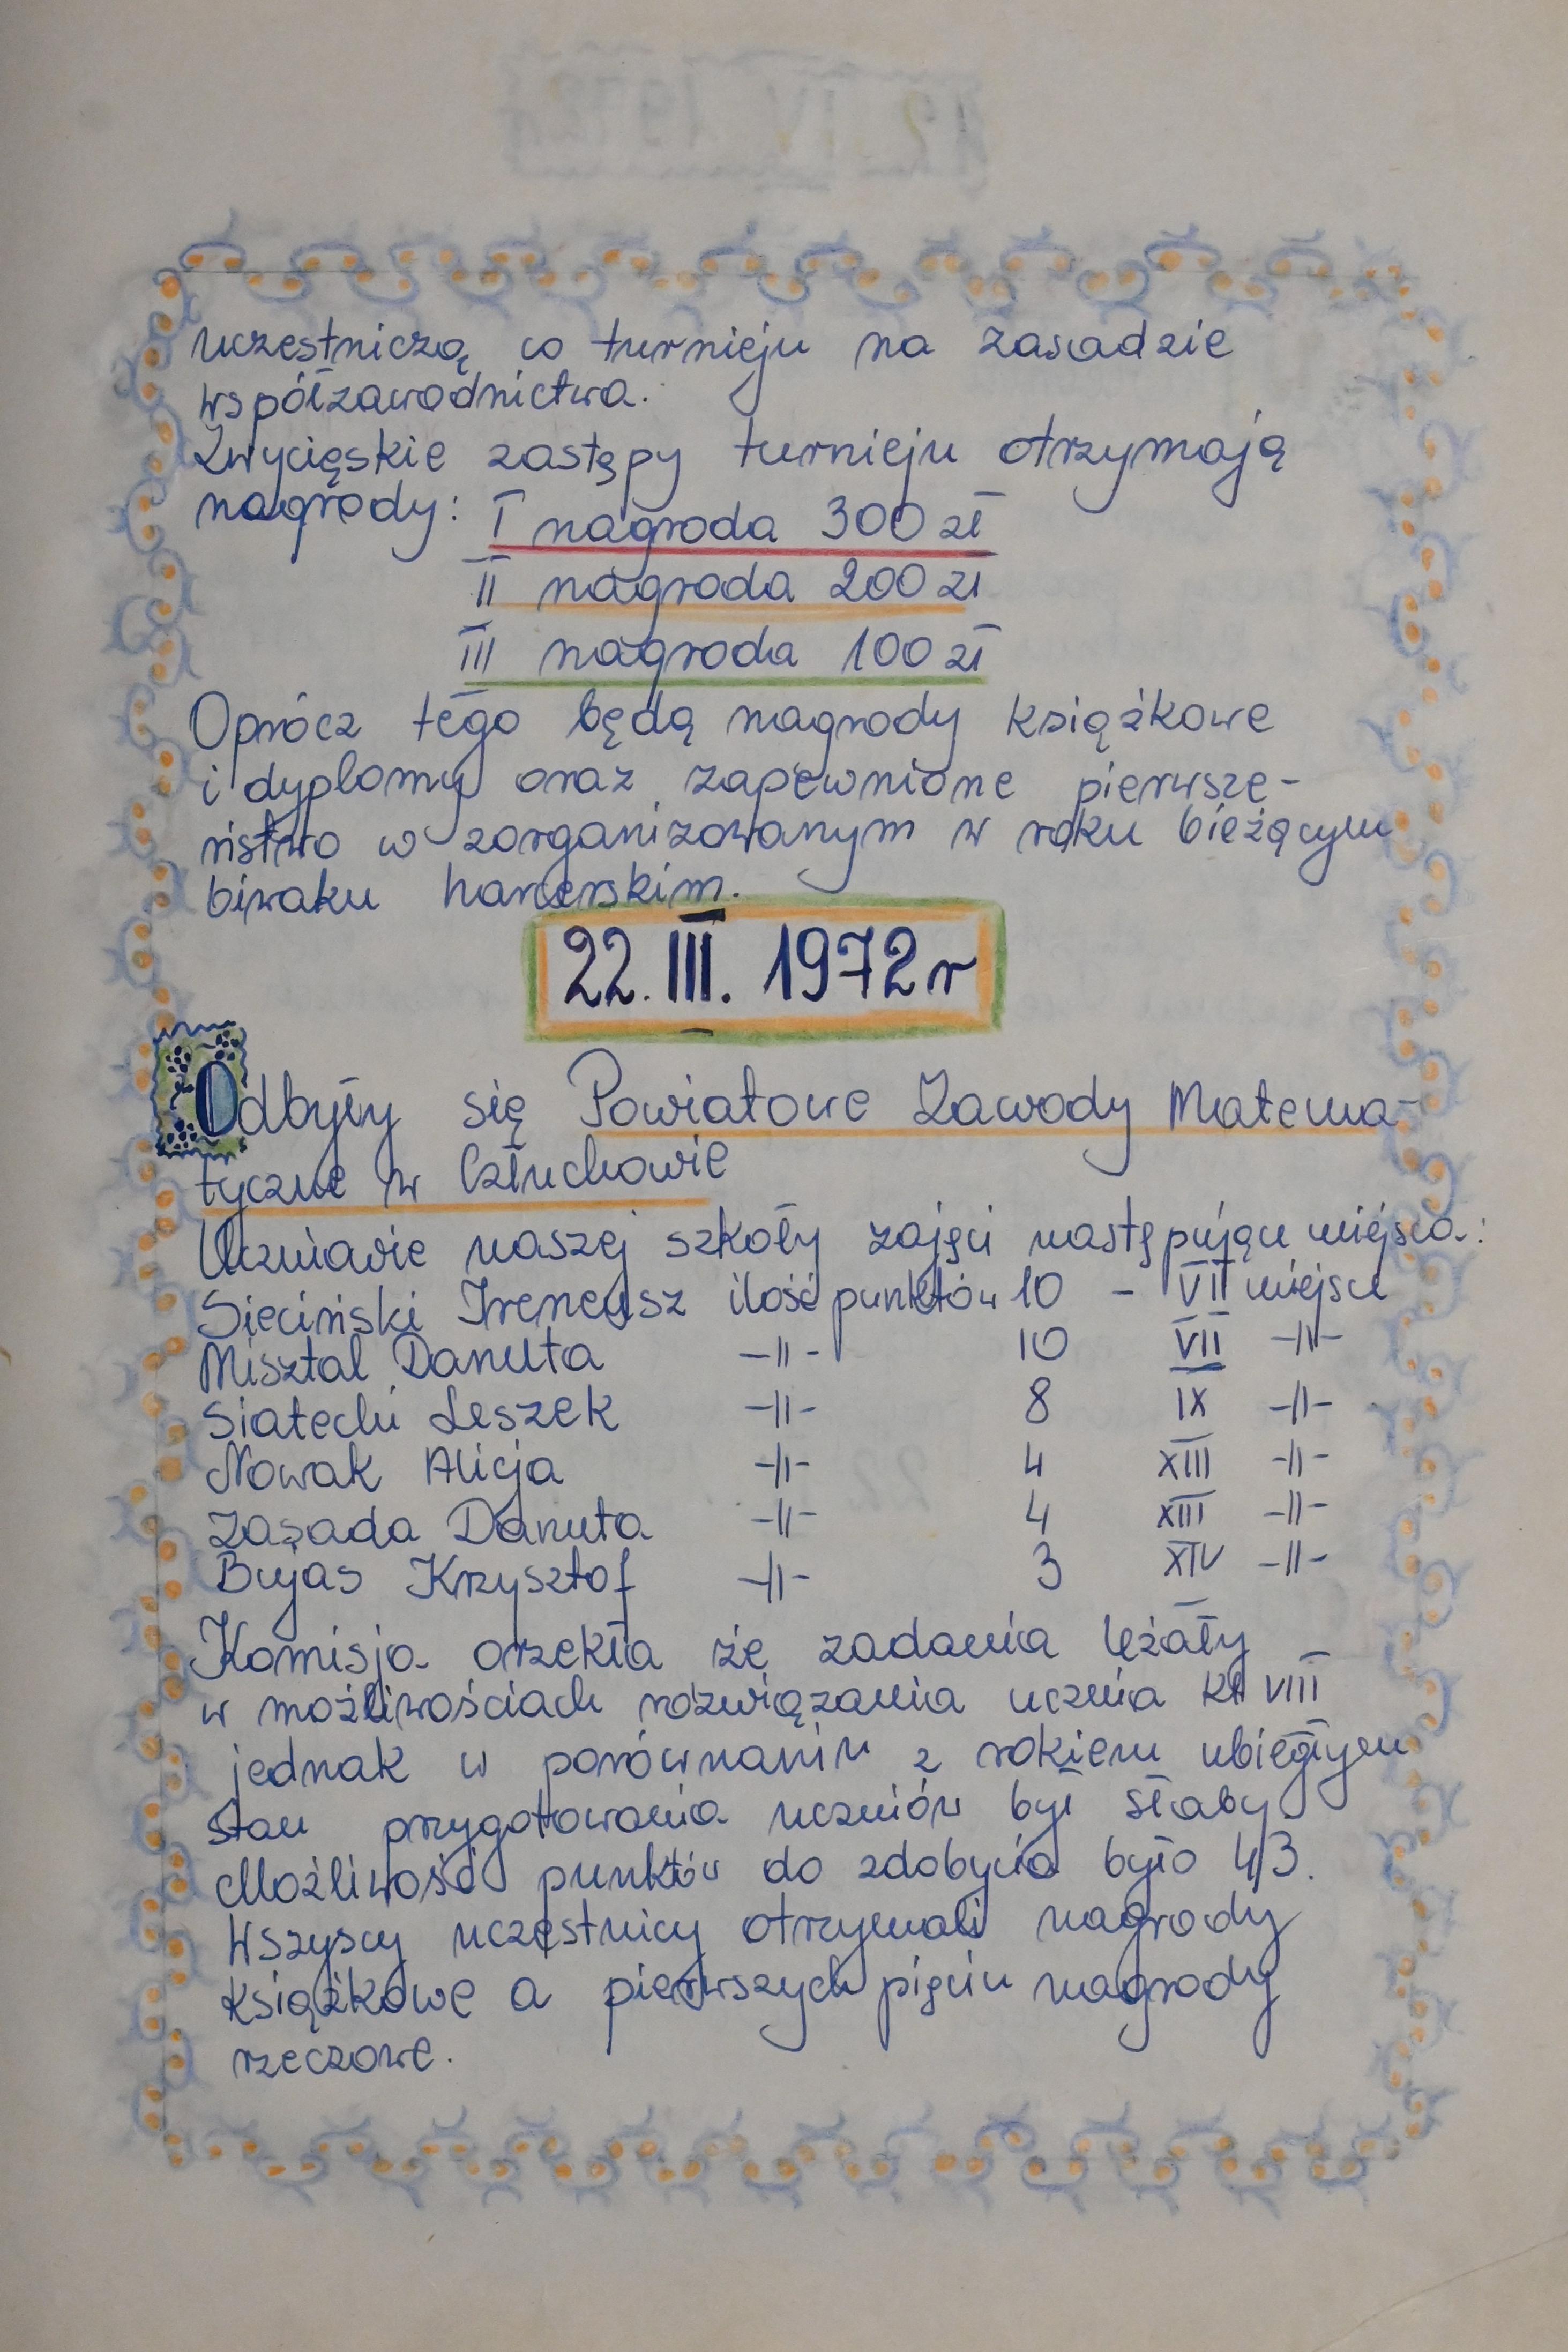 uczestniczą w turnieju na zasadzie
współzawodnictwa.
Zwycięskie zastępy turnieju otrzymają
nagrody: I nagroda 300 zł
II nagroda 200 zł
III nagroda 100 zł
Oprócz tego będą nagrody książkowe
i dyplomy oraz zapewnione pierwsze-
ństwo w zorganizowanym w roku bieżącym
biwaku harcerskim.
22. III. 1972 r
Odbyły się Powiatowe Zawody Matema-
tyczne w Człuchowie
Uczniowie naszej szkoły zajęci następujące miejsca:
Sieciński Ireneusz ilość punktów 10 - VII miejsce
Misztal Danuta -||- 10 VII -||-
Siatecki Leszek -||- 8 IX -||-
Nowak Alicja -||- 4 XIII -||-
Zasada Danuta -||- 4 XIII -||-
Bujas Krzysztof -||- 3 XIV -||-
Komisja orzekła że zadania leżały
w możliwościach rozwiązania ucznia kl VIII
jednak w porównaniu z rokiem ubiegłym
stan przygotowania uczniów był słaby
Możliwość punktów do zdobycia było 43.
Wszyscy uczestnicy otrzymali nagrody
książkowe a pierwszych pięciu nagrody
rzeczowe.